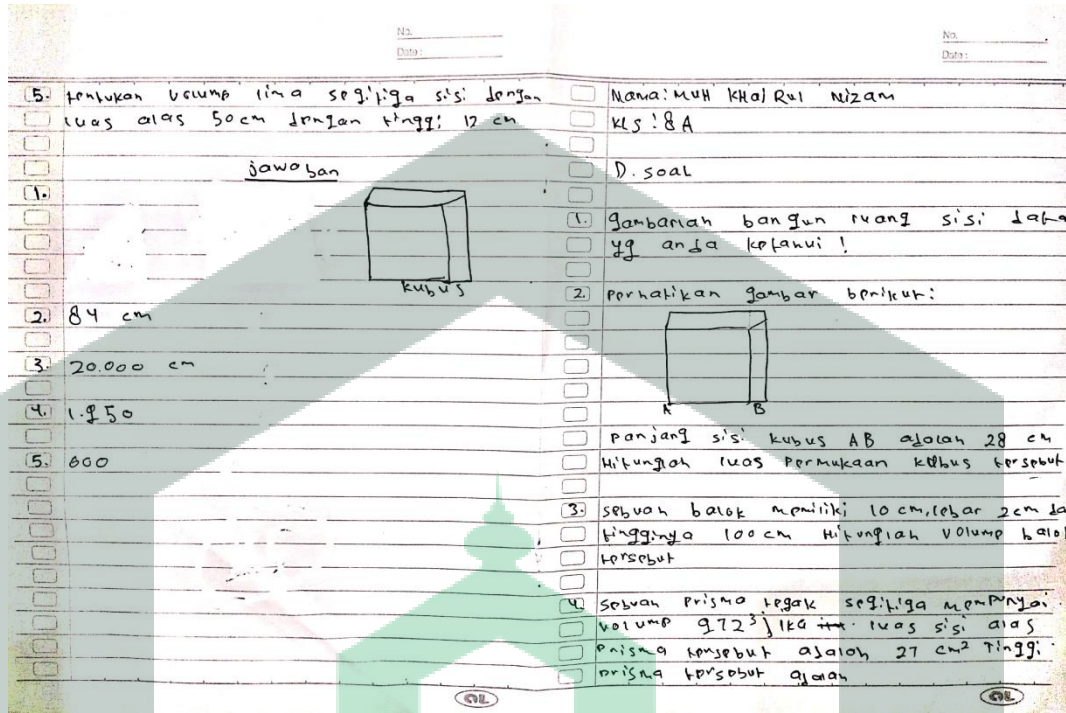 No.
Date:
5. tentukan volume lima segitiga sisi dengan
luas alas 50cm dengan tinggi 12 cm
jawaban
1.
kubus
2. 84 cm
3. 20.000 cm
4. 1.950
5. 600
No.
Date:
Nama: MUH KHAIRUL NIZAM
KLS : 8A
D. SOAL
1. gambarlah bangun ruang sisi data
yg anda ketahui !
2. perhatikan gambar berikut:
A B
panjang sisi kubus AB adalah 28 cm
Hitunglah luas permukaan kubus tersebut
3. sebuah balok memiliki 10 cm, lebar 2cm da
tingginya 100 cm Hitunglah volume balok
tersebut
4. sebuah prisma tegak segitiga mempunyai
volume 972³ jika luas sisi alas
prisma tersebut adalah 27 cm² Tinggi
prisma tersebut adalah